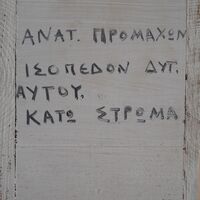 ΑΝΑΤ. ΠΡΟΜΑΧΩΝ
ΙΣΟΠΕΔΟΝ ΔΥΤ.
ΑΥΤΟΥ,
ΚΑΤΩ ΣΤΡΩΜΑ